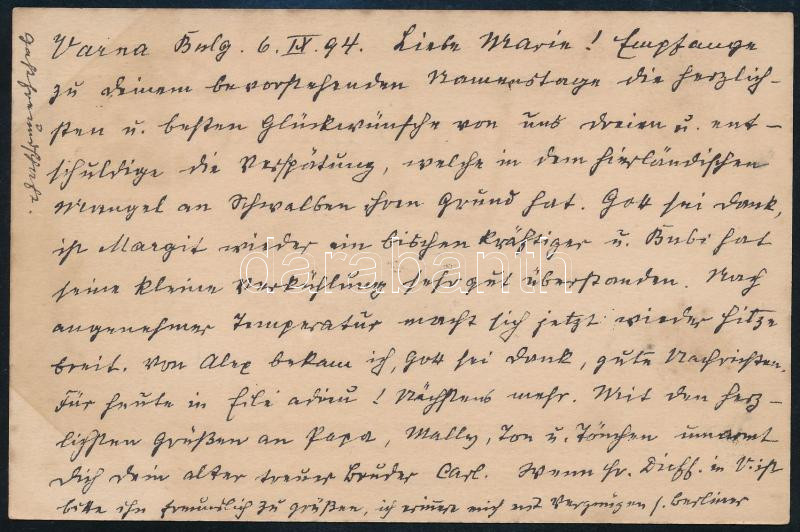 Varna Bulg. 6. IX. 94. Liebe Marie! Empfange
zu Deinem bevorstehenden Namenstage die herzlich-
sten u. besten Glückwünsche von uns dreien u. ent-
schuldige die Verspätung, welche in dem hierländischen
Mangel an Schwalben ihren Grund hat. Gott sei Dank,
ist Margit wieder ein bischen kräftiger u. Bubi hat
seine kleine Verkühlung sehr gut überstanden. Nach
angenehmer Temperatur macht sich jetzt wieder Hitze
breit. Von Alex bekam ich, Gott sei Dank, gute Nachrichten.
Für heute in Eile adieu! Nächstens mehr. Mit den herz-
lichsten Grüßen an Papa, Mally, Ton u. Tönchen umarmt
Dich Dein alter treuer Bruder Carl. Wenn Hr. in V. ist
bitte ihn freundlich zu grüßen, ich erinnere mich mit Vergnügen s. Berliner
Gastfreundschaft.
darabanth